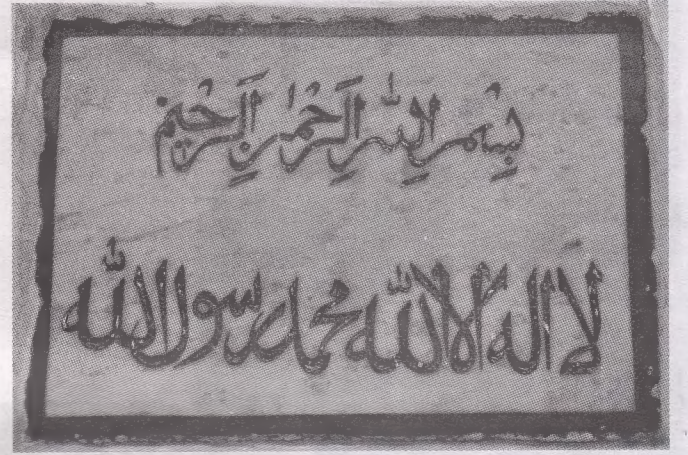 بِسْمِ اللّٰهِ الرَّحْمٰنِ الرَّحِيْمِ
لا اله الا الله محمد رسول الله